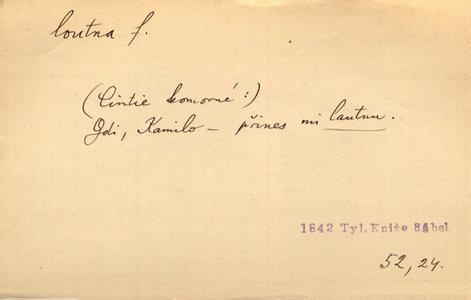 loutna f.
(Cintie komorné:)
Jdi, Kamilo – přines mi lautnu.
1842 Tyl, Kniže Bábel
52, 24.